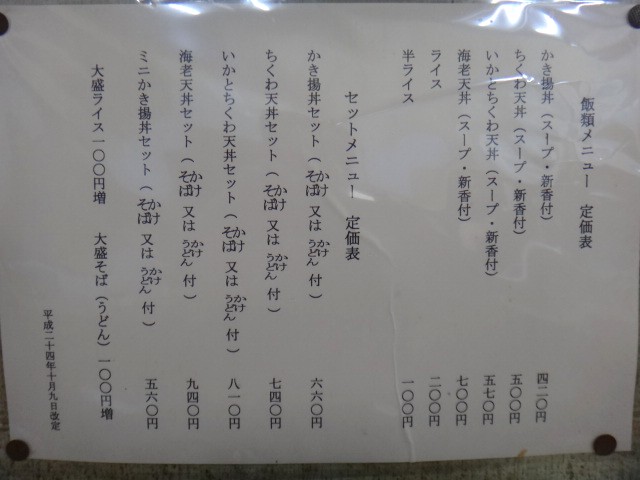 飯類メニュー 定価表
かき揚丼（スープ・新香付） 四二〇円
ちくわ天丼（スープ・新香付） 五〇〇円
いかとちくわ天丼（スープ・新香付） 五七〇円
海老天丼（スープ・新香付） 七〇〇円
ライス 二〇〇円
半ライス 一〇〇円
セットメニュー 定価表
かき揚丼セット（かけそば 又は かけうどん 付） 六六〇円
ちくわ天丼セット（かけそば 又は かけうどん 付） 七四〇円
いかとちくわ天丼セット（かけそば 又は かけうどん 付） 八一〇円
海老天丼セット（かけそば 又は かけうどん 付） 九四〇円
ミニかき揚丼セット（かけそば 又は かけうどん 付） 五六〇円
大盛ライス一〇〇円増 大盛そば（うどん）一〇〇円増
平成二十四年十月九日改定